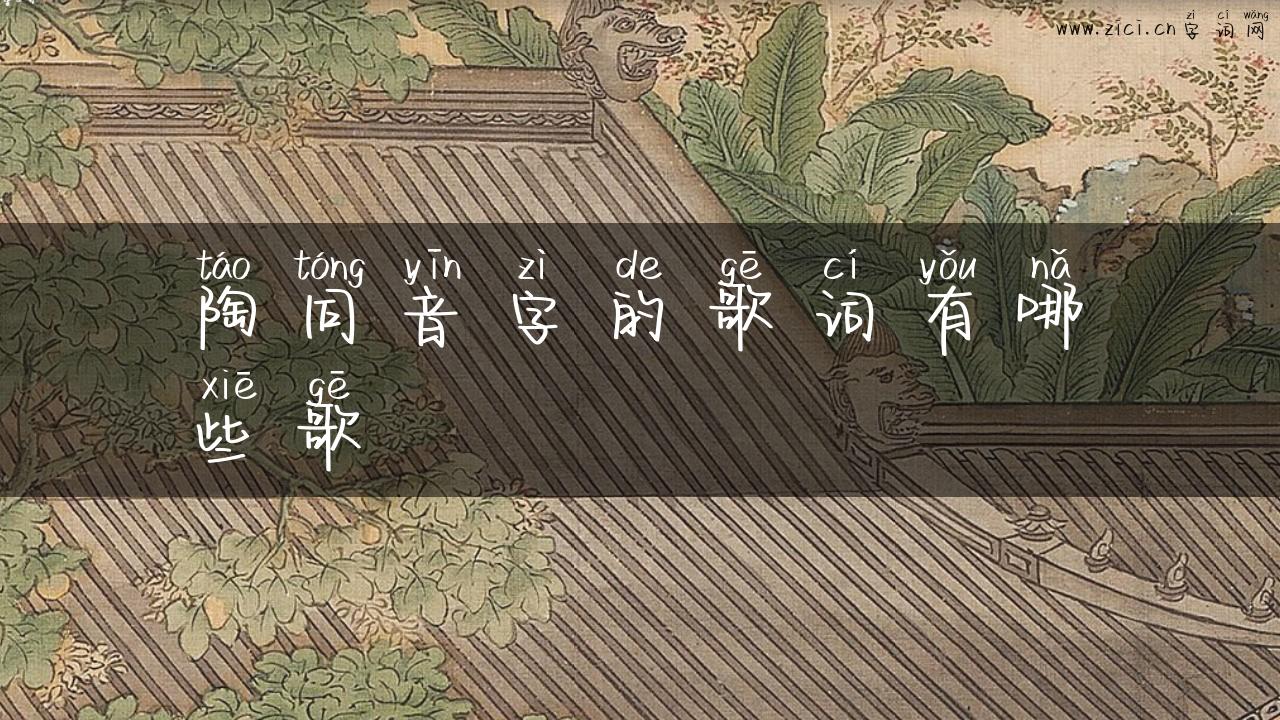 zì cí wǎng
www.zici.cn 字 词 网
táo tóng yīn zì de gē cí yǒu nǎ
陶 同 音 字 的 歌 词 有 哪
xiē gē
些 歌